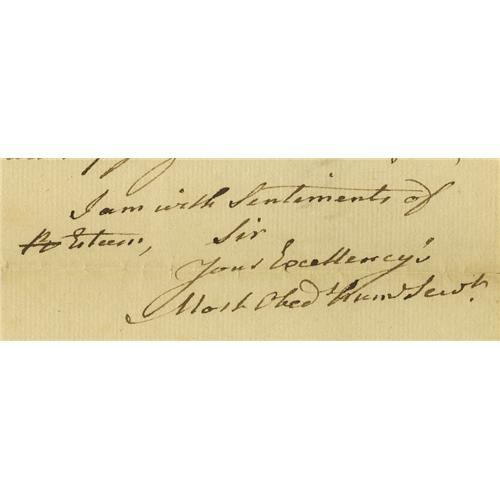 I am with Sentiments of
Esteem, Sir
Your Excellency's
Most Obed.t hum.l Serv.t